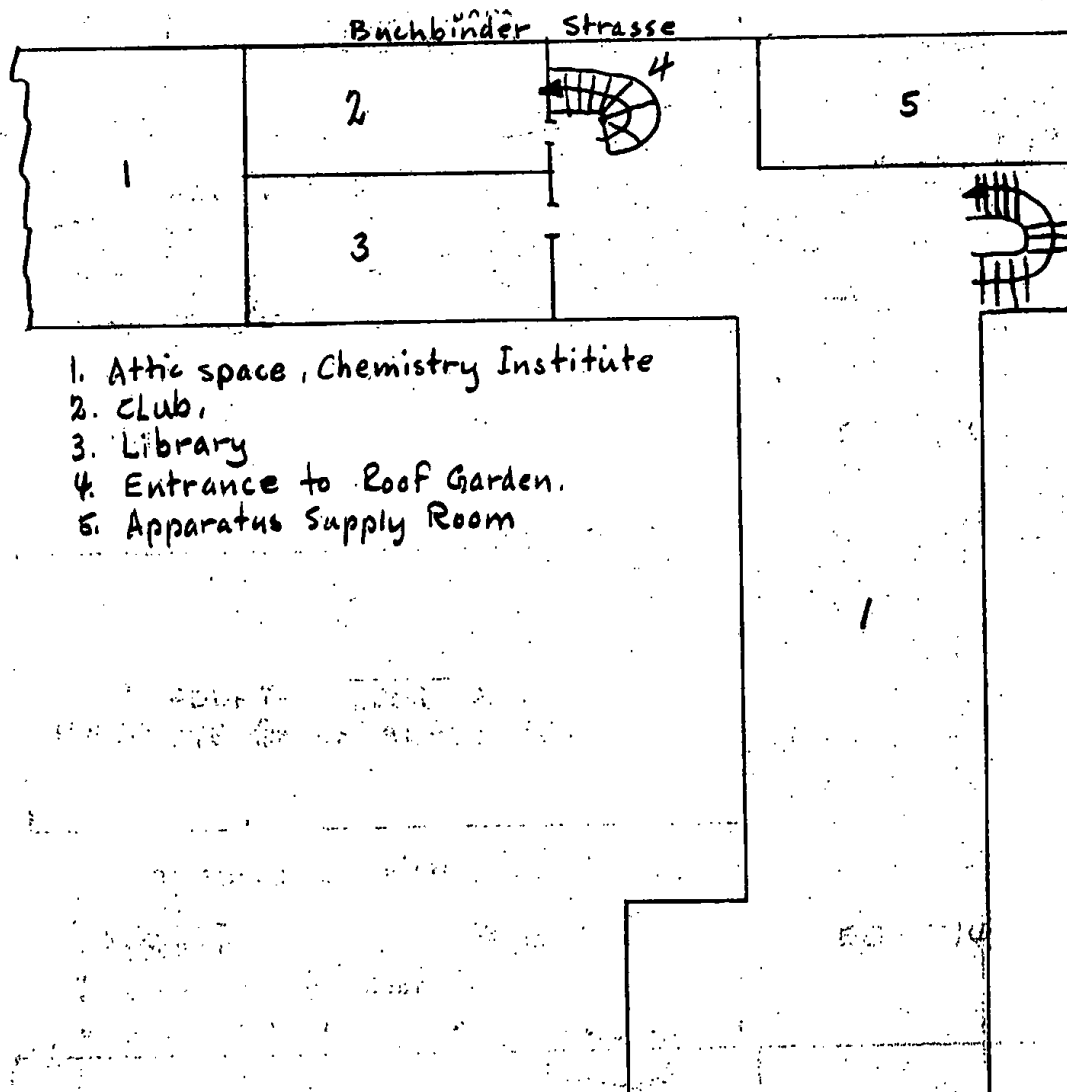 Buchbinder Strasse
4
2
5
1
3
1. Attic space, Chemistry Institute
2. CLub,
3. Library
4. Entrance to Roof Garden.
5. Apparatus Supply Room
1